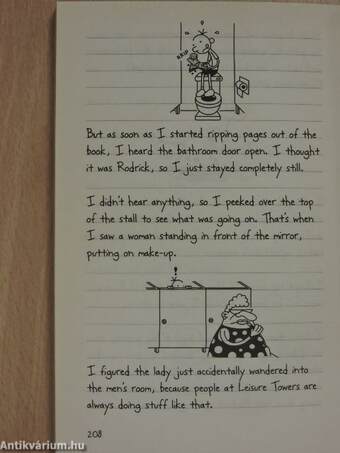 RRIP
But as soon as I started ripping pages out of the
book, I heard the bathroom door open. I thought
it was Rodrick, so I just stayed completely still.
I didn't hear anything, so I peeked over the top
of the stall to see what was going on. That's when
I saw a woman standing in front of the mirror,
putting on make-up.
!
I figured the lady just accidentally wandered into
the men's room, because people at Leisure Towers are
always doing stuff like that.
208
Antikvárium.hu